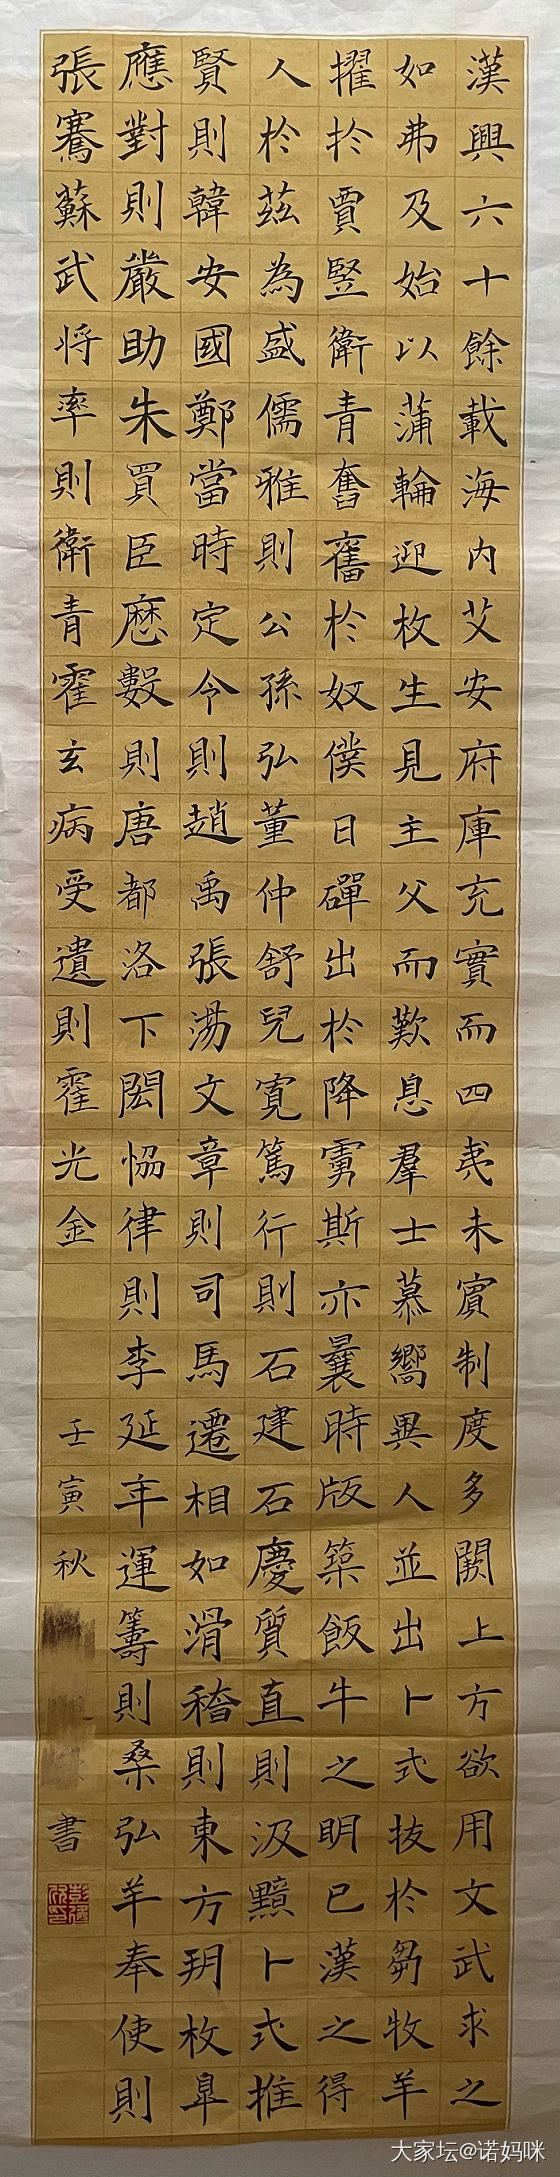 漢興六十餘載海内艾安府庫充實而四夷未賓制度多闕上方欲用文武求之
如弗及始以蒲輪迎枚生見主父而歎息羣士慕嚮異人並出卜式拔於芻牧羊
擢於賈竪衛青奮舊於奴僕日磾出於降虜斯亦曩時版築飯牛之明已漢之得
人於茲為盛儒雅則公孫弘董仲舒兒寬篤行則石建石慶質直則汲黯卜式推
賢則韓安國鄭當時定令則趙禹張湯文章則司馬遷相如滑稽則東方朔枚皋
應對則嚴助朱買臣厯數則唐都洛下閎恊律則李延年運籌則桑弘羊奉使則
張騫蘇武将率則衛青霍玄病受遺則霍光金
壬寅秋
書
大家坛@诺妈咪